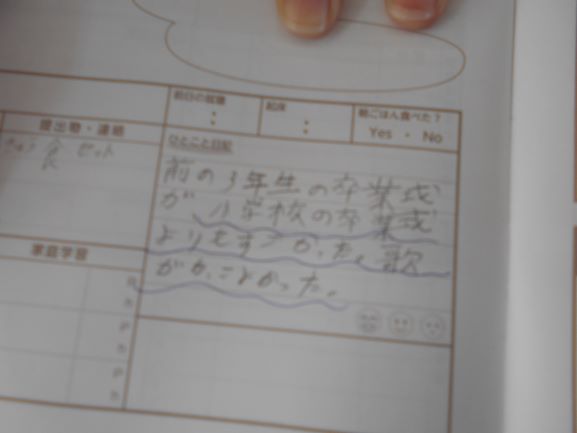 前日の就寝
:
起床
:
朝ごはん食べた？
Yes ・ No
提出物・連絡
食セット
ひとこと日記
前の3年生の卒業式
が、小学校の卒業式
よりもすごかった。歌
がかっこよかった。
家庭学習